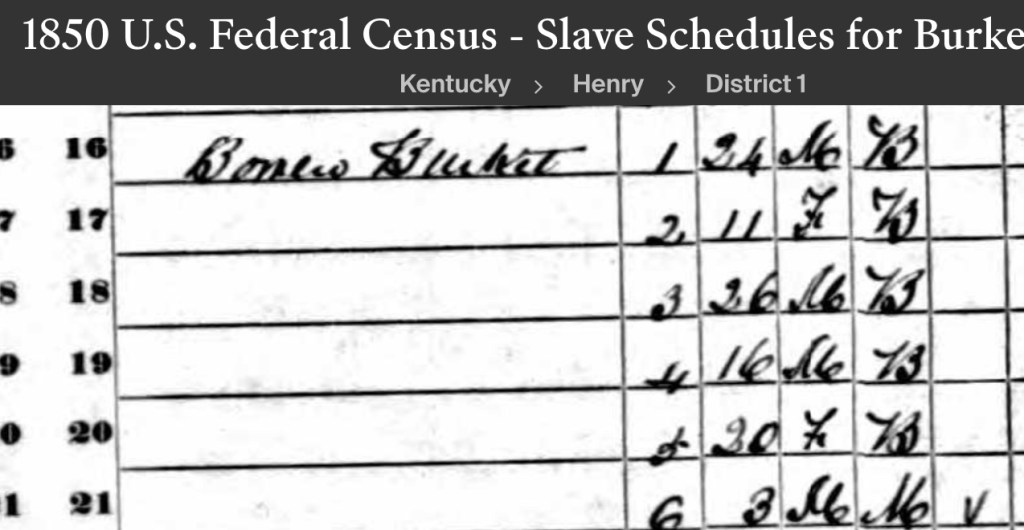 1850 U.S. Federal Census - Slave Schedules for Burke
Kentucky > Henry > District 1
6 16 1 24 M B
7 17 2 11 F B
8 18 3 26 M B
9 19 4 16 M B
0 20 5 30 F B
1 21 6 3 M M